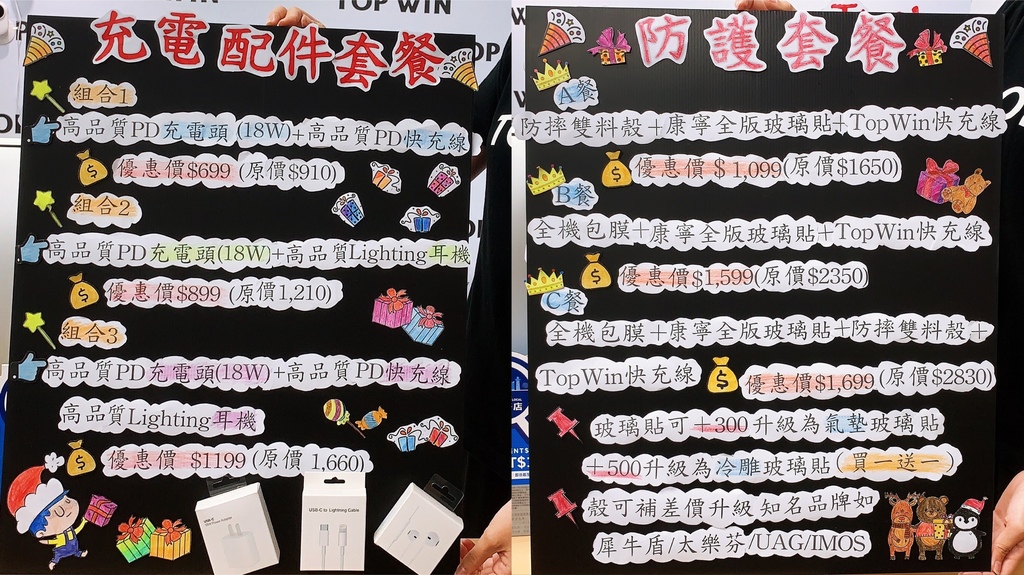 TOP WIN
充電配件套餐
組合1
高品質PD充電頭(18W)+高品質PD快充線
優惠價$699(原價$910)
組合2
高品質PD充電頭(18W)+高品質Lighting耳機
優惠價$899(原價1,210)
組合3
高品質PD充電頭(18W)+高品質PD快充線
高品質Lighting耳機
優惠價$1199(原價1,660)
USB-C
USB-C to Lightning Cable
防護套餐
A餐
防摔雙料殼+康寧全版玻璃貼+TopWin快充線
優惠價$1,099(原價$1650)
B餐
全機包膜+康寧全版玻璃貼+TopWin快充線
優惠價$1,599(原價$2350)
C餐
全機包膜+康寧全版玻璃貼+防摔雙料殼+
TopWin快充線 優惠價$1,699(原價$2830)
玻璃貼可+300升級為氣墊玻璃貼
+500升級為冷雕玻璃貼(買一送一)
殼可補差價升級知名品牌如
犀牛盾/太樂芬/UAG/IMOS